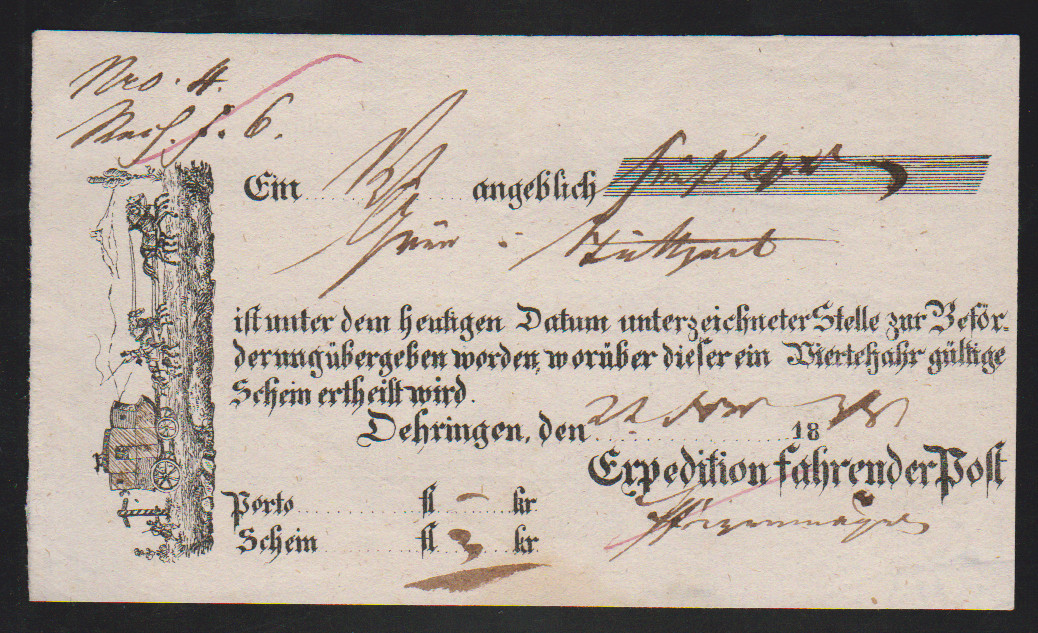 Nro. 4.
6.
Ein angeblich
Stuttgart
ist unter dem heutigen Datum unterzeichneter Stelle zur Beför-
derung übergeben worden, worüber dieser ein Vierteljahr gültige
Schein ertheilt wird.
Oehringen, den 22 Nov 18
Expedition fahrender Post
Porto fl – kr
Schein fl 3 kr